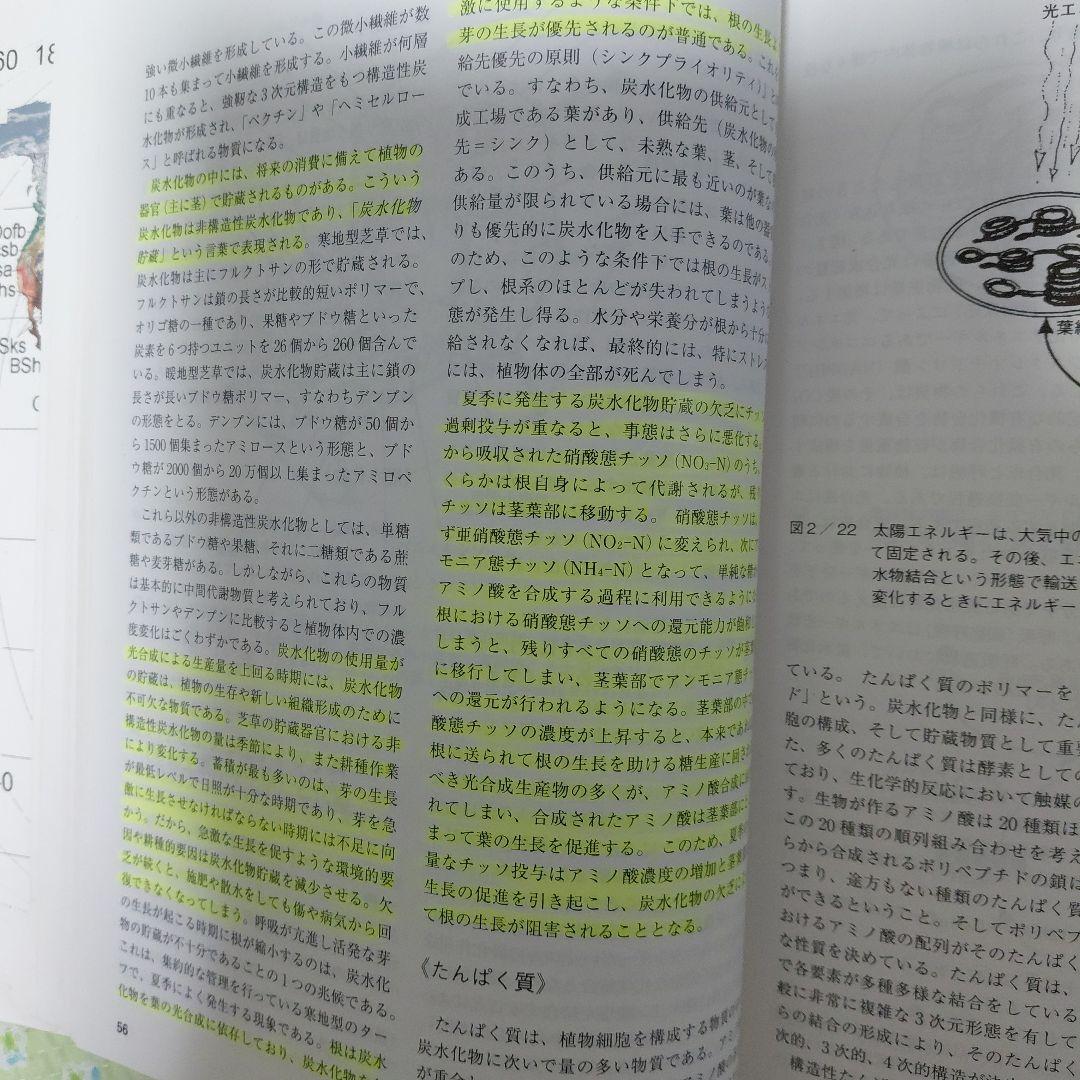 60 18
sb
sa
hs
Sks
BSh
強い微小繊維を形成している。この微小繊維が数
10本も集まって小繊維を形成する。小繊維が何層
にも重なると、強靭な3次元構造をもつ構造性炭
水化物が形成され、「ペクチン」や「ヘミセルロー
ス」と呼ばれる物質になる。
炭水化物の中には、将来の消費に備えて植物の
器官（主に茎）で貯蔵されるものがある。こういう
炭水化物は非構造性炭水化物であり、「炭水化物
貯蔵」という言葉で表現される。寒地型芝草では、
炭水化物は主にフルクトサンの形で貯蔵される。
フルクトサンは鎖の長さが比較的短いポリマーで、
オリゴ糖の一種であり、果糖やブドウ糖といった
炭素を6つ持つユニットを26個から260個含んで
いる。暖地型芝草では、炭水化物貯蔵は主に鎖の
長さが長いブドウ糖ポリマー、すなわちデンプン
の形態をとる。デンプンには、ブドウ糖が50個か
ら1500個集まったアミロースという形態と、ブド
ウ糖が2000個から20万個以上集まったアミロペ
クチンという形態がある。
これら以外の非構造性炭水化物としては、単糖
類であるブドウ糖や果糖、それに二糖類である蔗
糖や麦芽糖がある。しかしながら、これらの物質
は基本的に中間代謝物質と考えられており、フル
クトサンやデンプンに比較すると植物体内での濃
度変化はごくわずかである。炭水化物の使用量が
光合成による生産量を上回る時期には、炭水化物
の貯蔵は、植物の生存や新しい組織形成のために
不可欠な物質である。芝草の貯蔵器官における非
構造性炭水化物の量は季節により、また耕種作業
により変化する。蓄積が最も多いのは、芽の生長
が最低レベルで日照が十分な時期であり、芽を急
激に生長させなければならない時期には不足に向
かう。だから、急激な生長を促すような環境的要
因や耕種的要因は炭水化物貯蔵を減少させる。欠
乏が続くと、施肥や散水をしても傷や病気から回
復できなくなってしまう。呼吸が亢進し活発な芽
の生長が起こる時期に根が縮小するのは、炭水化
物の貯蔵が不十分であることの1つの兆候である。
これは、集約的な管理を行っている寒地型のター
フで、夏季によく発生する現象である。根は炭水
化物を葉の光合成に依存しており、炭水化物を
56
激に使用するような条件下では、根の生長よ
芽の生長が優先されるのが普通である。これ
給先優先の原則（シンクプライオリティ）」と
でいる。すなわち、炭水化物の供給元として
成工場である葉があり、供給先（炭水化物の
先＝シンク）として、未熟な葉、茎、そして
ある。このうち、供給元に最も近いのが葉な
供給量が限られている場合には、葉は他の器
りも優先的に炭水化物を入手できるのである。
のため、このような条件下では根の生長がス
プし、根系のほとんどが失われてしまうような
態が発生し得る。水分や栄養分が根から十分に
給されなくなれば、最終的には、特にストレス
には、植物体の全部が死んでしまう。
夏季に発生する炭水化物貯蔵の欠乏にチッソ
過剰投与が重なると、事態はさらに悪化する。
から吸収された硝酸態チッソ（NO₃-N）のうち、
くらかは根自身によって代謝されるが、残り
チッソは茎葉部に移動する。 硝酸態チッソは、
ず亜硝酸態チッソ（NO₂-N）に変えられ、次に
モニア態チッソ（NH₄-N）となって、単純な
アミノ酸を合成する過程に利用できるように
根における硝酸態チッソへの還元能力が飽和
しまうと、残りすべての硝酸態のチッソが茎葉
に移行してしまい、茎葉部でアンモニア態チ
への還元が行われるようになる。茎葉部の中で
酸態チッソの濃度が上昇すると、本来であれば
根に送られて根の生長を助ける糖生産に回され
べき光合成生産物の多くが、アミノ酸合成に
れてしまい、合成されたアミノ酸は茎葉部に
まって葉の生長を促進する。 このため、夏季
量なチッソ投与はアミノ酸濃度の増加と茎葉
生長の促進を引き起こし、炭水化物の欠乏に
て根の生長が阻害されることとなる。
《たんぱく質》
たんぱく質は、植物細胞を構成する物質の
炭水化物に次いで量の多い物質である。アミ
光エ
葉
図2／22 太陽エネルギーは、大気中の
て固定される。その後、エネ
水物結合という形態で輸送
変化するときにエネルギー
ている。 たんぱく質のポリマーを
ド」という。炭水化物と同様に、たん
胞の構成、そして貯蔵物質として重要
た、多くのたんぱく質は酵素としての
ており、生化学的反応において触媒の
す。生物が作るアミノ酸は20種類ほ
この20種類の順列組み合わせを考え
らから合成されるポリペプチドの鎖に
つまり、途方もない種類のたんぱく質
ができるということ。そしてポリペプ
おけるアミノ酸の配列がそのたんぱく
な性質を決めている。たんぱく質は、
で各要素が多種多様な結合をしている
較に非常に複雑な3次元形態を有して
らの結合の形成により、そのたんぱく
次的、3次的、4次的構造が
構造性たん